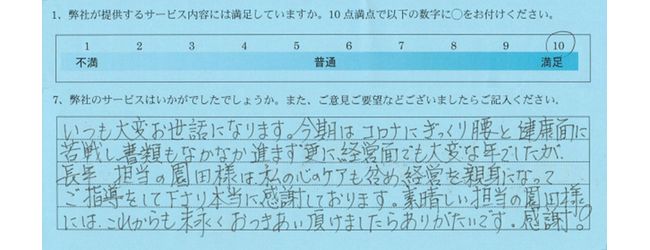 1、弊社が提供するサービス内容には満足していますか。10点満点で以下の数字に○をお付けください。
1 2 3 4 5 6 7 8 9 10
不満 普通 満足
7、弊社のサービスはいかがでしたでしょうか。また、ご意見ご要望などございましたらご記入ください。
いつも大変お世話になります。今期はコロナにぎっくり腰と健康面に
苦戦し書類もなかなか進まず更に経営面でも大変な年でしたが、
長年担当の園田様は私の心のケアも含め経営を親身になって
ご指導をして下さり本当に感謝しております。素晴しい担当の園田様
には、これからも末永くおつきあい頂けましたらありがたいです。感謝!。